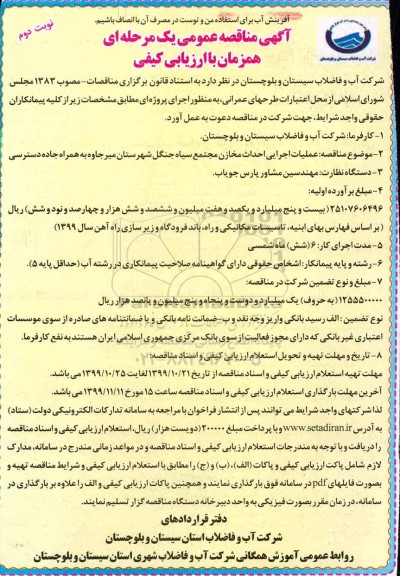 آفرینش آب برای استفاده من و توست در مصرف آن با انصاف باشیم.
نوبت دوم
آگهی مناقصه عمومی یک مرحله ای
همزمان با ارزیابی کیفی
شرکت آب و فاضلاب سیستان و بلوچستان
شرکت آب و فاضلاب سیستان و بلوچستان در نظر دارد به استناد قانون برگزاری مناقصات - مصوب ۱۳۸۳ مجلس
شورای اسلامی از محل اعتبارات طرحهای عمرانی، به منظور اجرای پروژه ای مطابق مشخصات زیر از کلیه پیمانکاران
حقوقی واجد شرایط، جهت شرکت در مناقصه دعوت به عمل آورد.
۱- کارفرما: شرکت آب و فاضلاب سیستان و بلوچستان.
۲- موضوع مناقصه: عملیات اجرایی احداث مخازن مجتمع سیاه جنگل شهرستان میرجاوه به همراه جاده دسترسی
۳- دستگاه نظارت: مهندسین مشاور پارس جویاب.
۴- مبلغ برآورد اولیه:
۲۵۱۰۷۶۰۶۴۹۶ (بیست و پنج میلیارد و یکصد و هفت میلیون و ششصد و شش هزار و چهارصد و نود و شش) ریال
(بر اساس فهارس بهای ابنیه، تاسیسات مکانیکی و راه، باند فرودگاه و زیر سازی راه آهن سال ۱۳۹۹)
۵- مدت اجرای کار: ۶ (شش) ماه شمسی
۶- رشته و پایه پیمانکار: اشخاص حقوقی دارای گواهینامه صلاحیت پیمانکاری در رشته آب (حداقل پایه ۵).
۷- مبلغ و نوع تضمین شرکت در مناقصه:
۱۲۵۵۵۰۰۰۰۰ (به حروف) یک میلیارد و دویست و پنجاه و پنج میلیون و پانصد هزار ریال
نوع تضمین: الف رسید بانکی واریز وجه نقد و ب- ضمانت نامه بانکی و یا ضمانتنامه های صادره از سوی موسسات
اعتباری غیر بانکی که دارای مجوز فعالیت از سوی بانک مرکزی جمهوری اسلامی ایران هستند به نفع کارفرما.
۸- تاریخ و مهلت تهیه و تحویل استعلام ارزیابی کیفی و اسناد مناقصه:
مهلت تهیه استعلام ارزیابی کیفی و اسناد مناقصه از تاریخ ۱۳۹۹/۱۰/۲۱ لغایت ۱۳۹۹/۱۰/۲۵ می باشد.
آخرین مهلت بارگذاری استعلام ارزیابی و اسناد مناقصه ساعت ۱۵ مورخ ۱۳۹۹/۱۱/۱۱ می باشد.
لذا شرکتهای واجد شرایط می توانند پس از انتشار فراخوان با مراجعه به سامانه تدارکات الکترونیکی دولت (ستاد)
به آدرس www.setadiran.ir و با پرداخت مبلغ ۲۰۰۰۰۰ (دویست هزار) ریال، استعلام ارزیابی کیفی و اسناد مناقصه
را دریافت و با توجه به مندرجات استعلام ارزیابی کیفی و اسناد مناقصه و در مواعد زمانی مندرج در سامانه، مدارک
لازم شامل پاکت ارزیابی کیفی و پاکات (الف)، (ب) و (ج) را مطابق با استعلام ارزیابی کیفی و شرایط مناقصه تهیه و
بصورت فایلهای pdf در سامانه فوق بارگذاری نمایند و همچنین پاکات ارزیابی کیفی و الف را علاوه بر بارگذاری در
سامانه، در زمان مقرر بصورت فیزیکی به واحد دبیرخانه دستگاه مناقصه گزار تسلیم نمایند.
دفتر قراردادهای
شرکت آب و فاضلاب استان سیستان و بلوچستان
روابط عمومی آموزش همگانی شرکت آب و فاضلاب شهری استان سیستان و بلوچستان